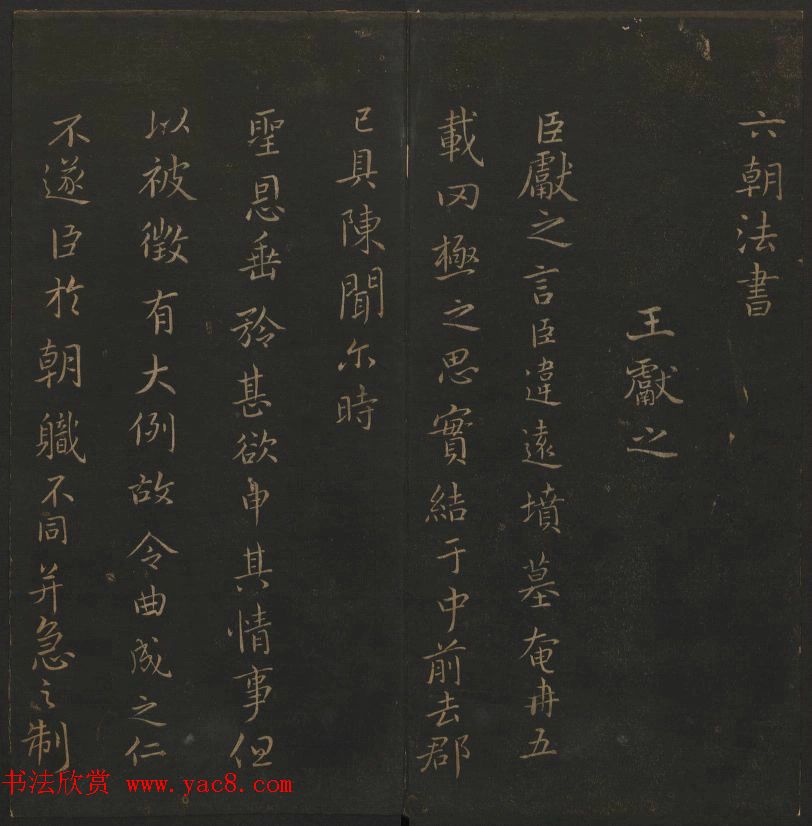 六朝法書
王獻之
臣獻之言臣違遠墳墓奄冉五
載罔極之思實結于中前去郡
已具陳聞尔時
聖恩垂矜甚欲申其情事但
以被徵有大例故令曲成之仁
不遂臣於朝職不同并急之制
书法欣赏 www.yac8.com